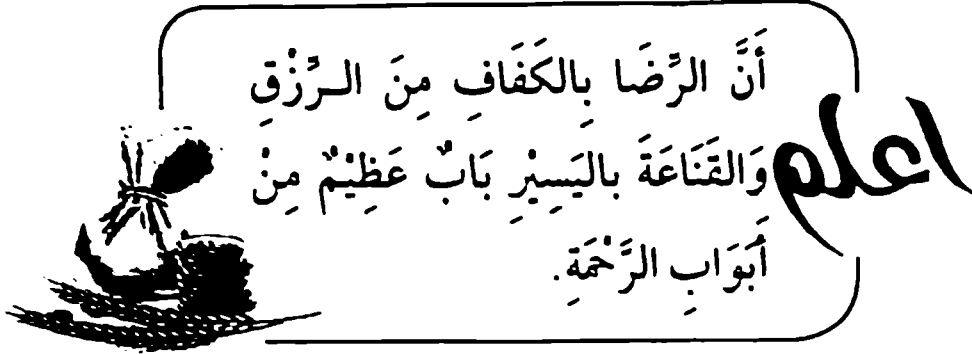 اعلم
أَنَّ الرِّضَا بِالكَفَافِ مِنَ الـرِّزْقِ
وَالقَنَاعَةَ بالیَسِیْرِ بَابٌ عَظِیْمٌ مِنْ
أَبوَابِ الرَّحْمَةِ.